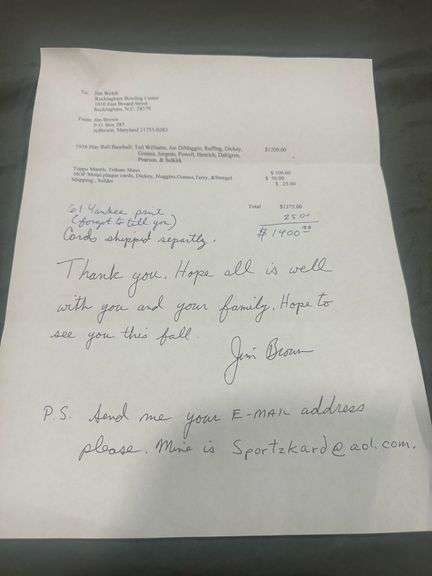 To: Jim Welsh
Rockingham Bowling Center
East Broad Street
Rockingham, N.C. 28379
From: Jim Brown
P.O. Box 287
Jefferson, Maryland 21755-0287
1939 Play Ball Baseball: Ted Williams, Joe DiMaggio, Ruffing, Dickey, $1200.00
Gomez, Powell, Henrich, Dahlgren,
Pearson, & Selkirk
Topps Mantle Tribute Sheet $ 100.00
HOF Metal plaque cards, Dickey, Huggins, Gomez, Terry, $ 50.00
Shipping, $ 25.00
61 Yankee print Total $1375.00
(forgot to tell you) 25 00
Cards shipped separtly. $ 1400 00
Thank you. Hope all is well
with you and your family. Hope to
see you this fall.
Jim Brown
P.S. Send me your E-MAIL address
please. Mine is Sportzkard@aol.com.